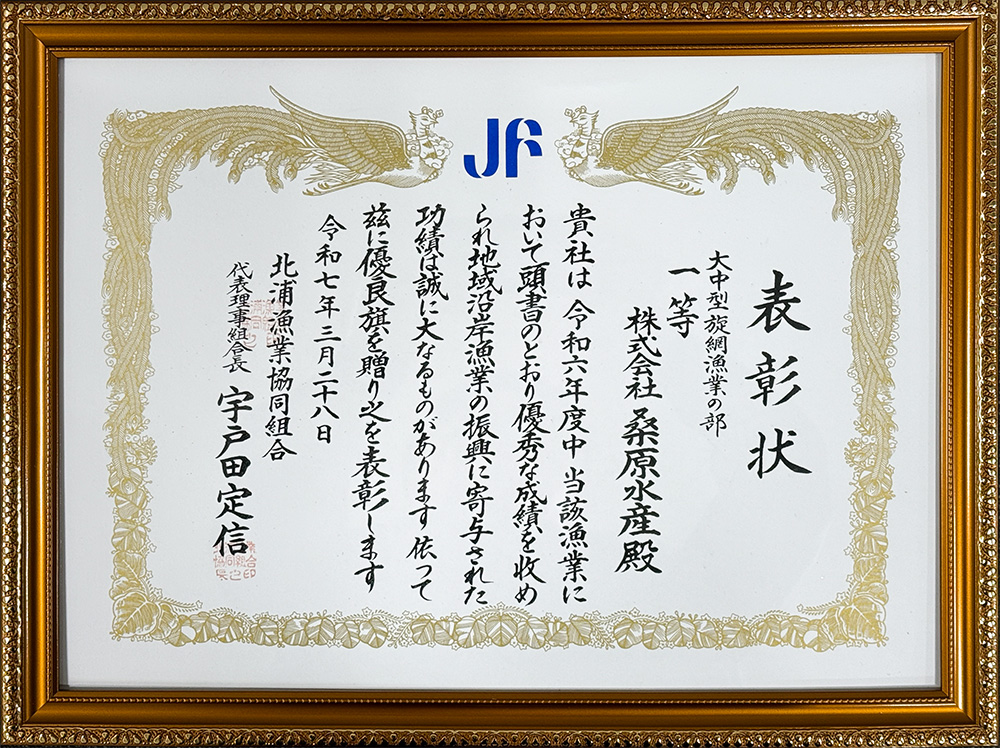 JF
表彰状
大中型旋網漁業の部
一等
株式会社 桑原水産殿
貴社は 令和六年度中 当該漁業に
おいて頭書のとおり優秀な成績を収め
られ地域沿岸漁業の振興に寄与された
功績は誠に大なるものがあります 依って
茲に優良旗を贈り之を表彰します
令和七年三月二十八日
北浦漁業協同組合
代表理事組合長 宇戸田定信